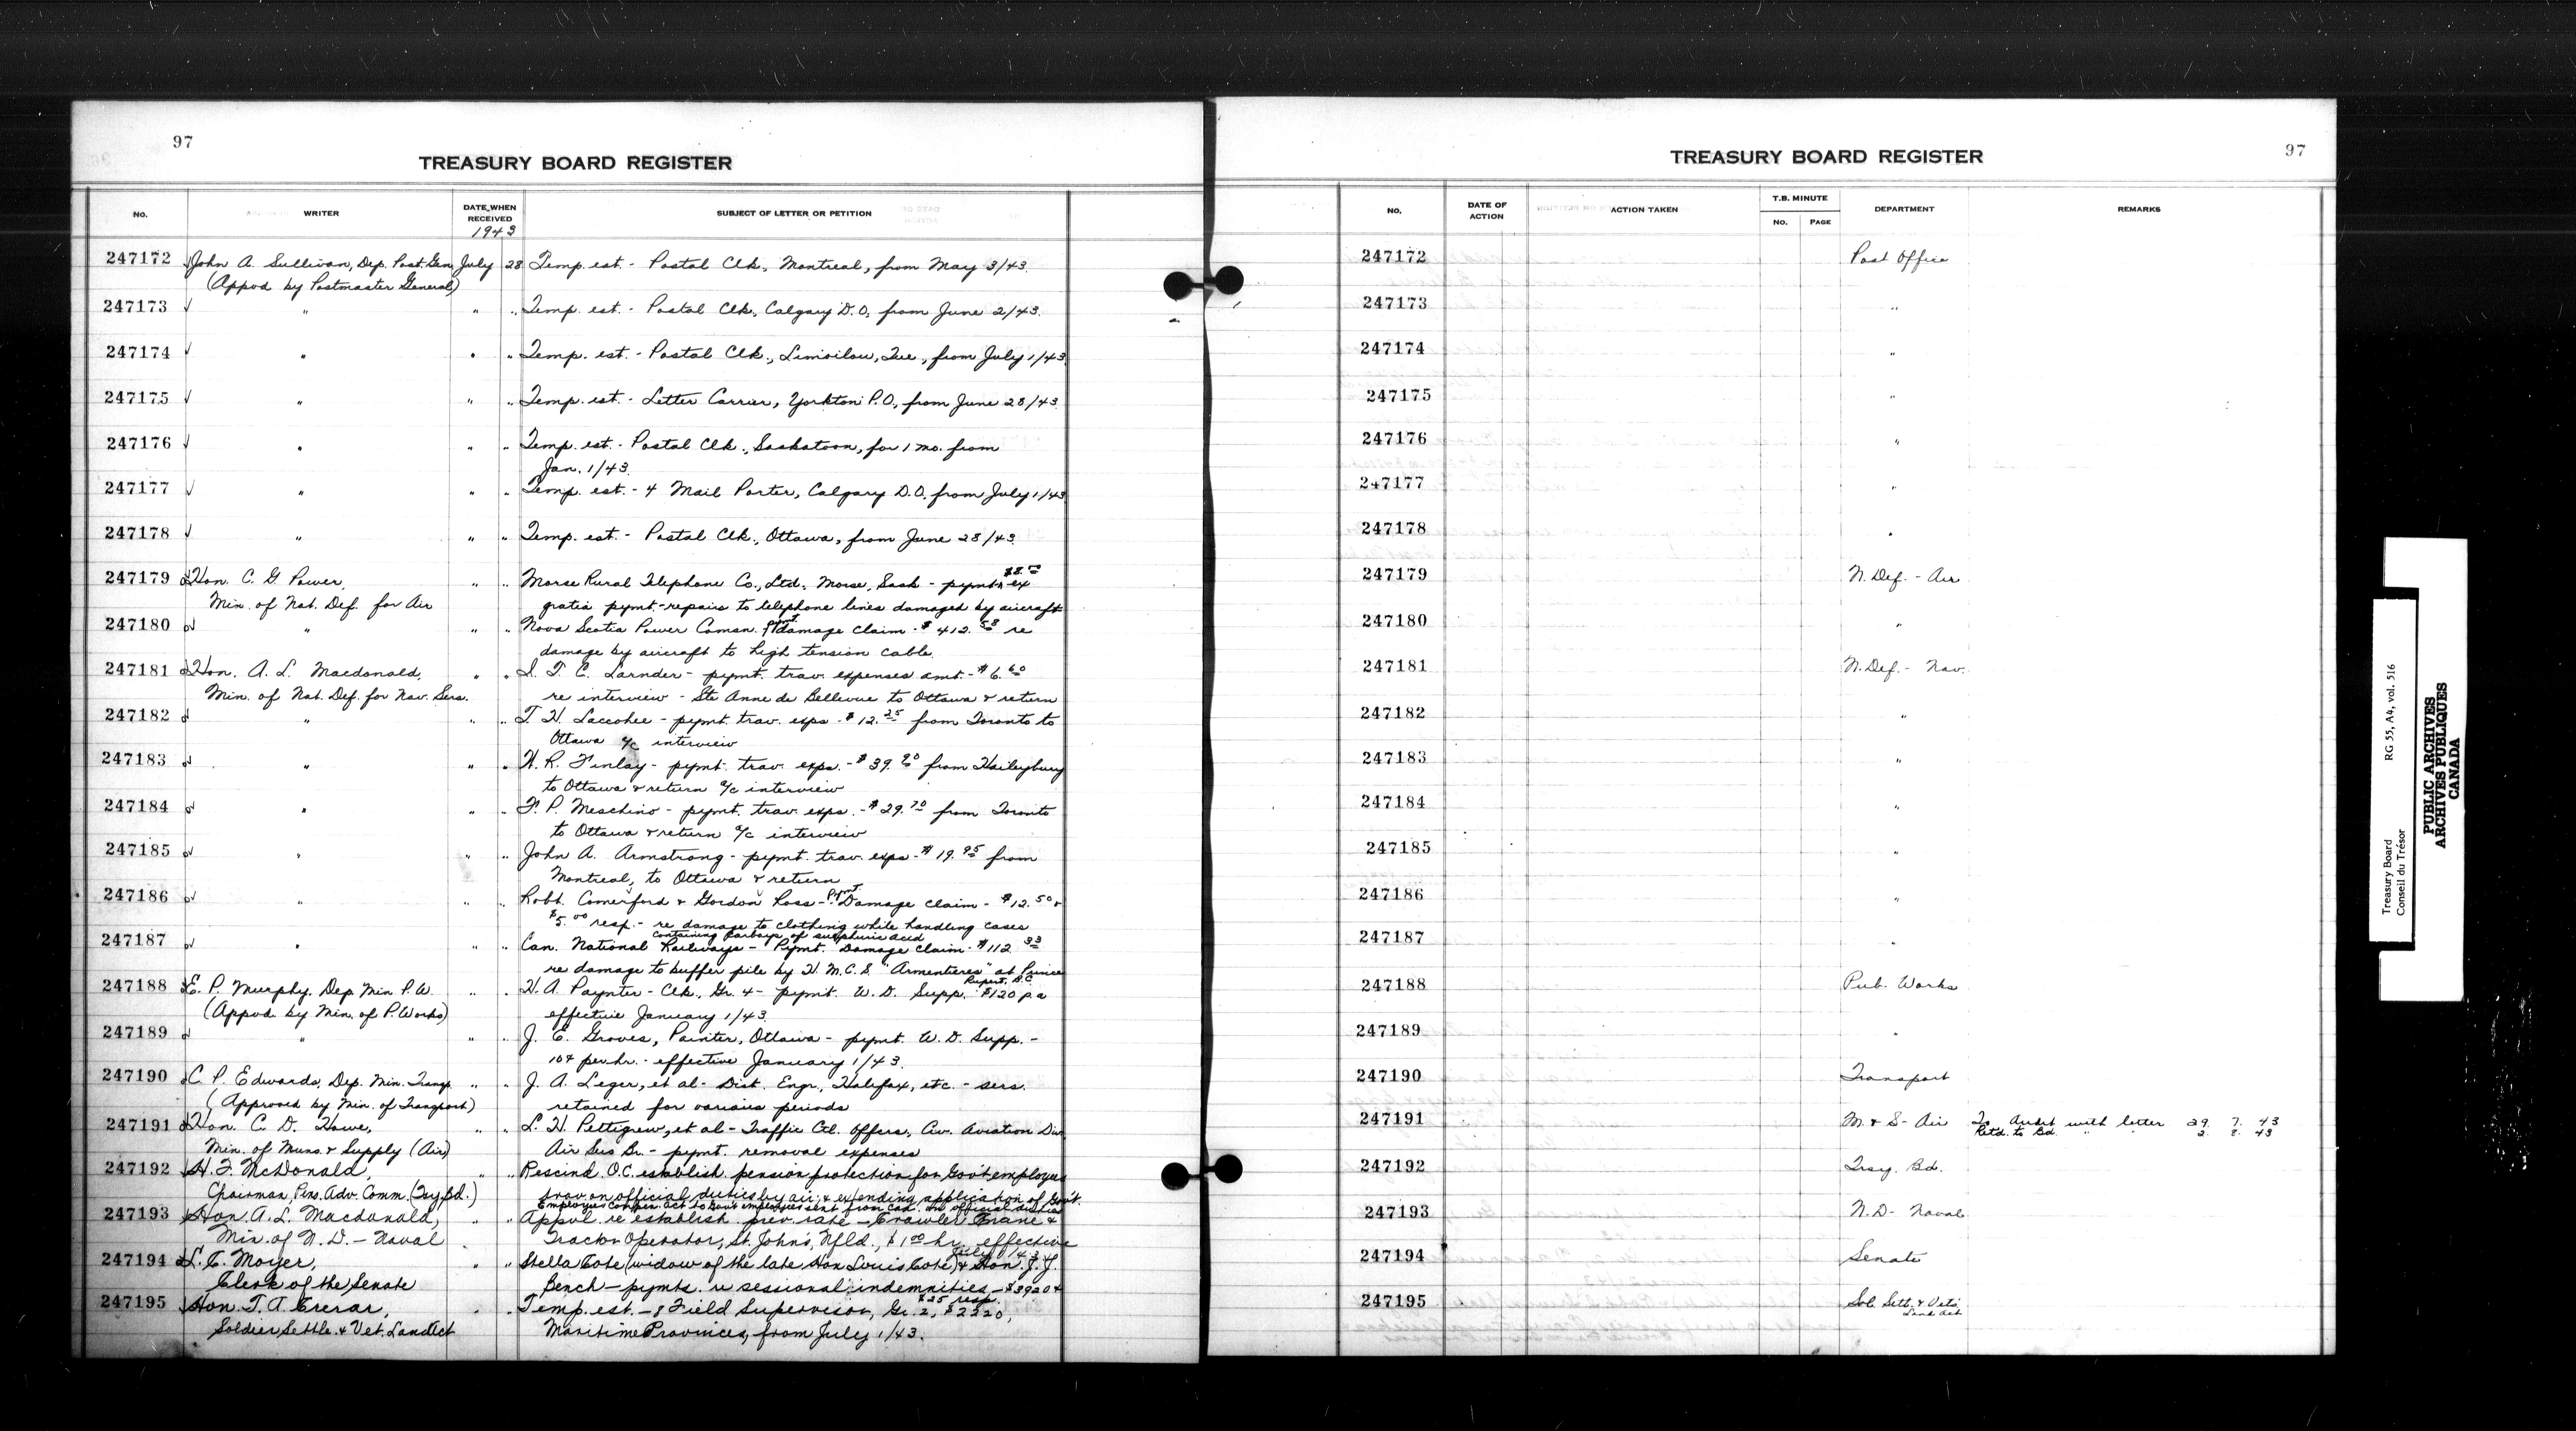 97
TREASURY BOARD REGISTER
NO. WRITER DATE WHEN RECEIVED SUBJECT OF LETTER OR PETITION
1943
247172 John A. Sullivan, Dep. Post. Gen. July 28 Temp. est. - Postal Clk., Montreal, from May 3/43.
(Appvd by Postmaster General)
247173 " " " Temp. est. - Postal Clk., Calgary D.O., from June 2/43.
247174 " " " Temp. est. - Postal Clk., Limoilou, Que., from July 1/43.
247175 " " " Temp. est. - Letter Carrier, Yorkton P.O., from June 28/43.
247176 " " " Temp. est. - Postal Clk., Saskatoon, for 1 mo. from
Jan. 1/43.
247177 " " " Temp. est. - 4 Mail Porter, Calgary D.O. from July 1/43
247178 " " " Temp. est. - Postal Clk., Ottawa, from June 28/43.
247179 Hon. C. G. Power, " " Morse Rural Telephone Co., Ltd. Morse, Sask - pymt. ex
Min. of Nat. Def. for Air gratia pymt. - repairs to telephone lines damaged by aircraft
247180 " " " Nova Scotia Power Comsn. pymt. damage claim - $412.58 re
damage by aircraft to high tension cable.
247181 Hon. A. L. Macdonald, " " T. C. Larnder - pymt. trav. expenses amt. - $6.60
Min. of Nat. Def. for Nav. Sers. re interview - Ste Anne de Bellevue to Ottawa & return
247182 " " " T. H. Laccohee - pymt. trav. exps. - $12.25 from Toronto to
Ottawa a/c interview
247183 " " " H. R. Finlay - pymt. trav. exps. - $39.20 from Haileybury
to Ottawa & return a/c interview
247184 " " " F. P. Meschino - pymt. trav. exps. - $29.70 from Toronto
to Ottawa & return a/c interview
247185 " " " John A. Armstrong - pymt. trav. exps - $19.95 from
Montreal, to Ottawa & return
247186 " " " Robt. Comerford & Gordon Ross - Pymt. Damage claim - $12.50 &
$5.00 resp. - re damage to clothing while handling cases
containing carboys of sulphuric acid
247187 " " " Can. National Railways - Pymt. Damage claim - $112.33
re damage to buffer pile by H.M.C.S. "Armentieres" at Prince
Rupert, B.C.
247188 E. P. Murphy, Dep. Min P.W. " " H. A. Paynter - Clk., Gr. 4 - pymt. W. D. Supp. $120 p.a
(Appvd. by Min. of P. Works) effective January 1/43.
247189 " " " J. E. Groves, Painter, Ottawa - pymt. W. D. Supp. -
10¢ per hr. - effective January 1/43.
247190 C. P. Edwards, Dep. Min. Transp. " " J. A. Leger, et al - Dist. Engr., Halifax, etc. - sers.
(Approved by Min. of Transport) retained for various periods
247191 Hon. C. D. Howe, " " L. H. Pettigrew, et al - Traffic Ctl. Offers, Civ. Aviation Div.
Min. of Muns. & Supply (Air) Air Ser Br. - pymt. removal expenses
247192 H. F. McDonald, " " Rescind O.C. establish. pension protection for Gov't employees
Chairman, Pens. Adv. Comm. (Tsy. Bd.) trav. on official duties by air; & extending application of Gov't.
Employees Compen. Act to Gov't employees sent from Can. on official duties
247193 Hon. A. L. Macdonald, " " Appvl. re establish. prev. rate - Crawler Crane &
Min. of N. D. - Naval Tractor Operator, St. John's, Nfld., $1.00 hr. effective
July 1/43
247194 L. C. Moyer, " " Stella Cote (widow of the late Hon Louis Cote) & Hon. J. J.
Clerk of the Senate Bench - pymts. re sessional indemnities - $3920 &
$25 resp.
247195 Hon. T. A. Crerar, " " Temp. est. - 8 Field Supervisor, Gr. 2, $2220,
Soldier Settle. & Vet. Land Act Maritime Provinces, from July 1/43.
TREASURY BOARD REGISTER
97
NO. DATE OF ACTION ACTION TAKEN T.B. MINUTE NO. PAGE DEPARTMENT REMARKS
247172 Post Office
247173 "
247174 "
247175 "
247176 "
247177 "
247178 "
247179 N. Def. - Air
247180 "
247181 N. Def. - Nav.
247182 "
247183 "
247184 "
247185 "
247186 "
247187 "
247188 Pub. Works
247189 "
247190 Transport
247191 M. & S - Air To Audit with letter 29. 7. 43
Retd. to Bd. " " 2. 8. 43
247192 Trsy. Bd.
247193 N.D - Naval
247194 Senate
247195 Sol. Sett. & Vets
Land Act
Treasury Board
Conseil du Trésor
RG 55, A4, vol. 516
PUBLIC ARCHIVES
ARCHIVES PUBLIQUES
CANADA